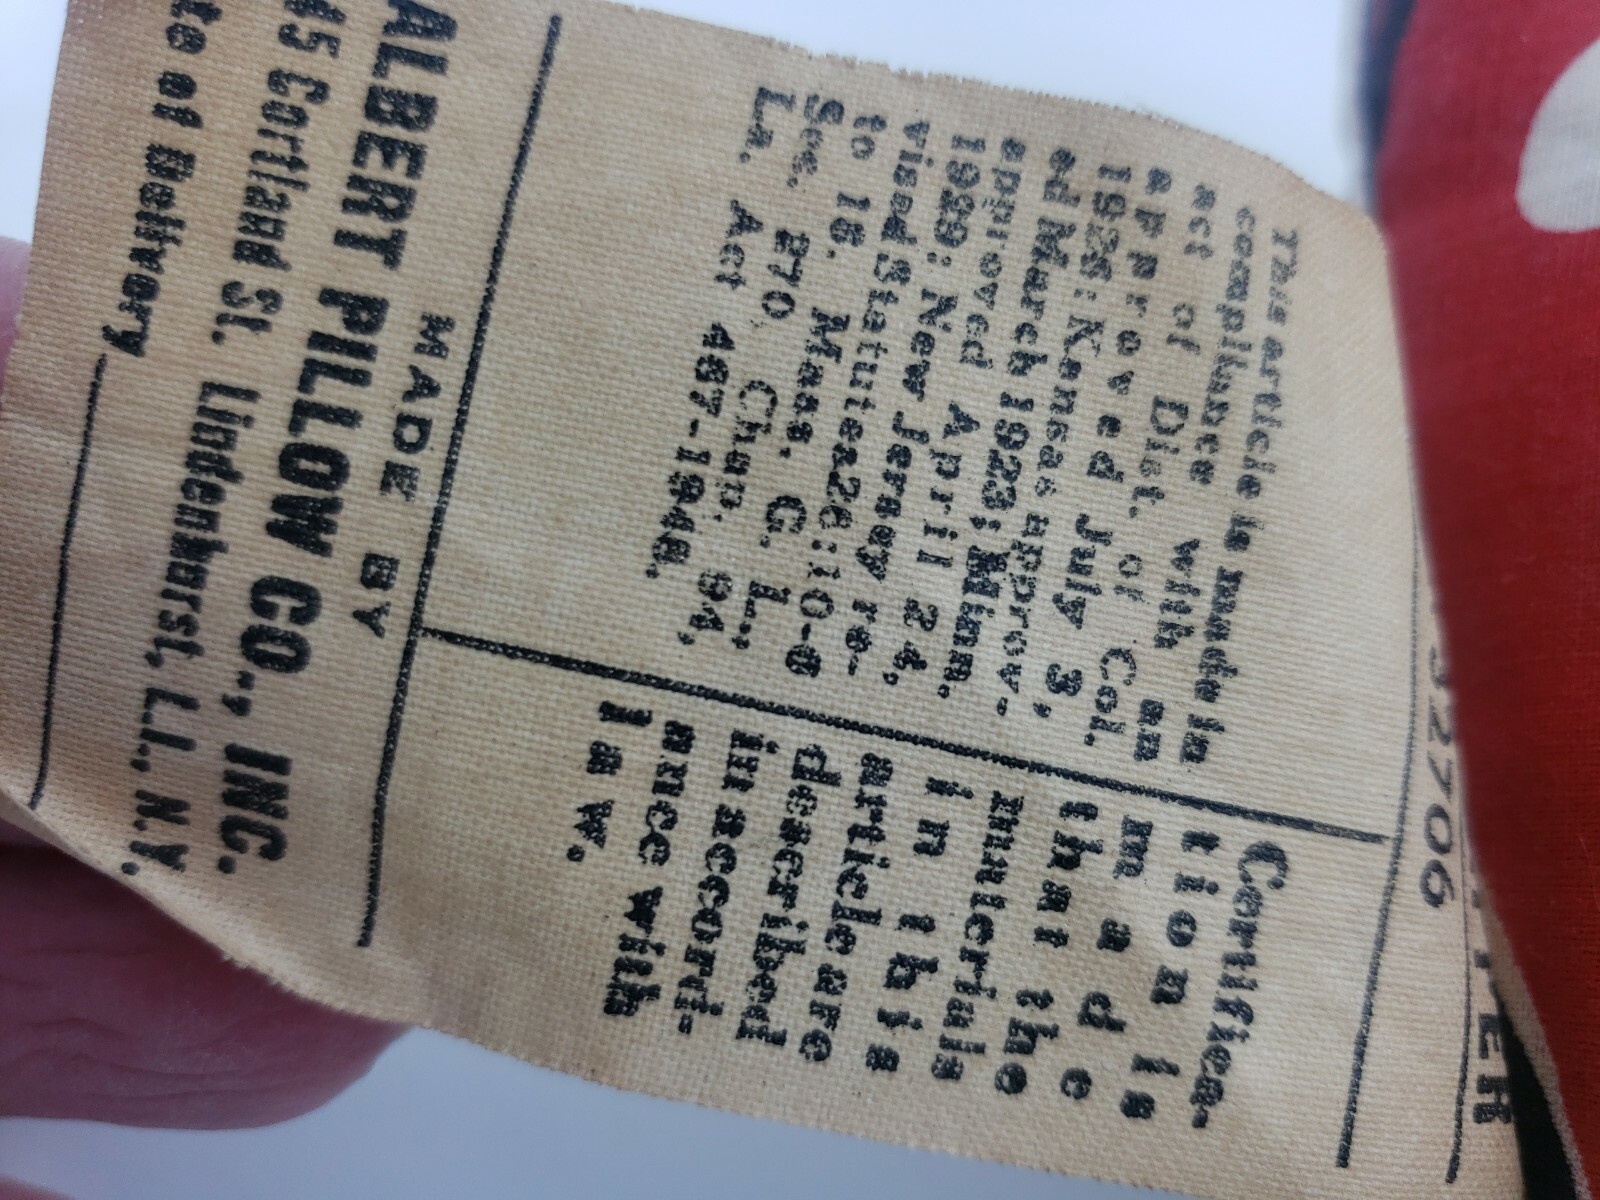 32706
This article is made in
compliance with an
act of Dist. of Col.
approved July 3,
1926; Kansas approv-
ed March 1923; Minn.
approved April 24,
1929; New Jersey re-
vised Statutes 26:10-6
to 18. Mass. G. L.,
Sec. 270 Chap. 94,
La. Act 467-1948.
Certifica-
tion is
made
that the
materials
in this
article are
described
in accord-
ance with
law.
MADE BY
ALBERT PILLOW CO., INC.
45 Cortland St. Lindenhurst, L.I., N.Y.
of Delivery